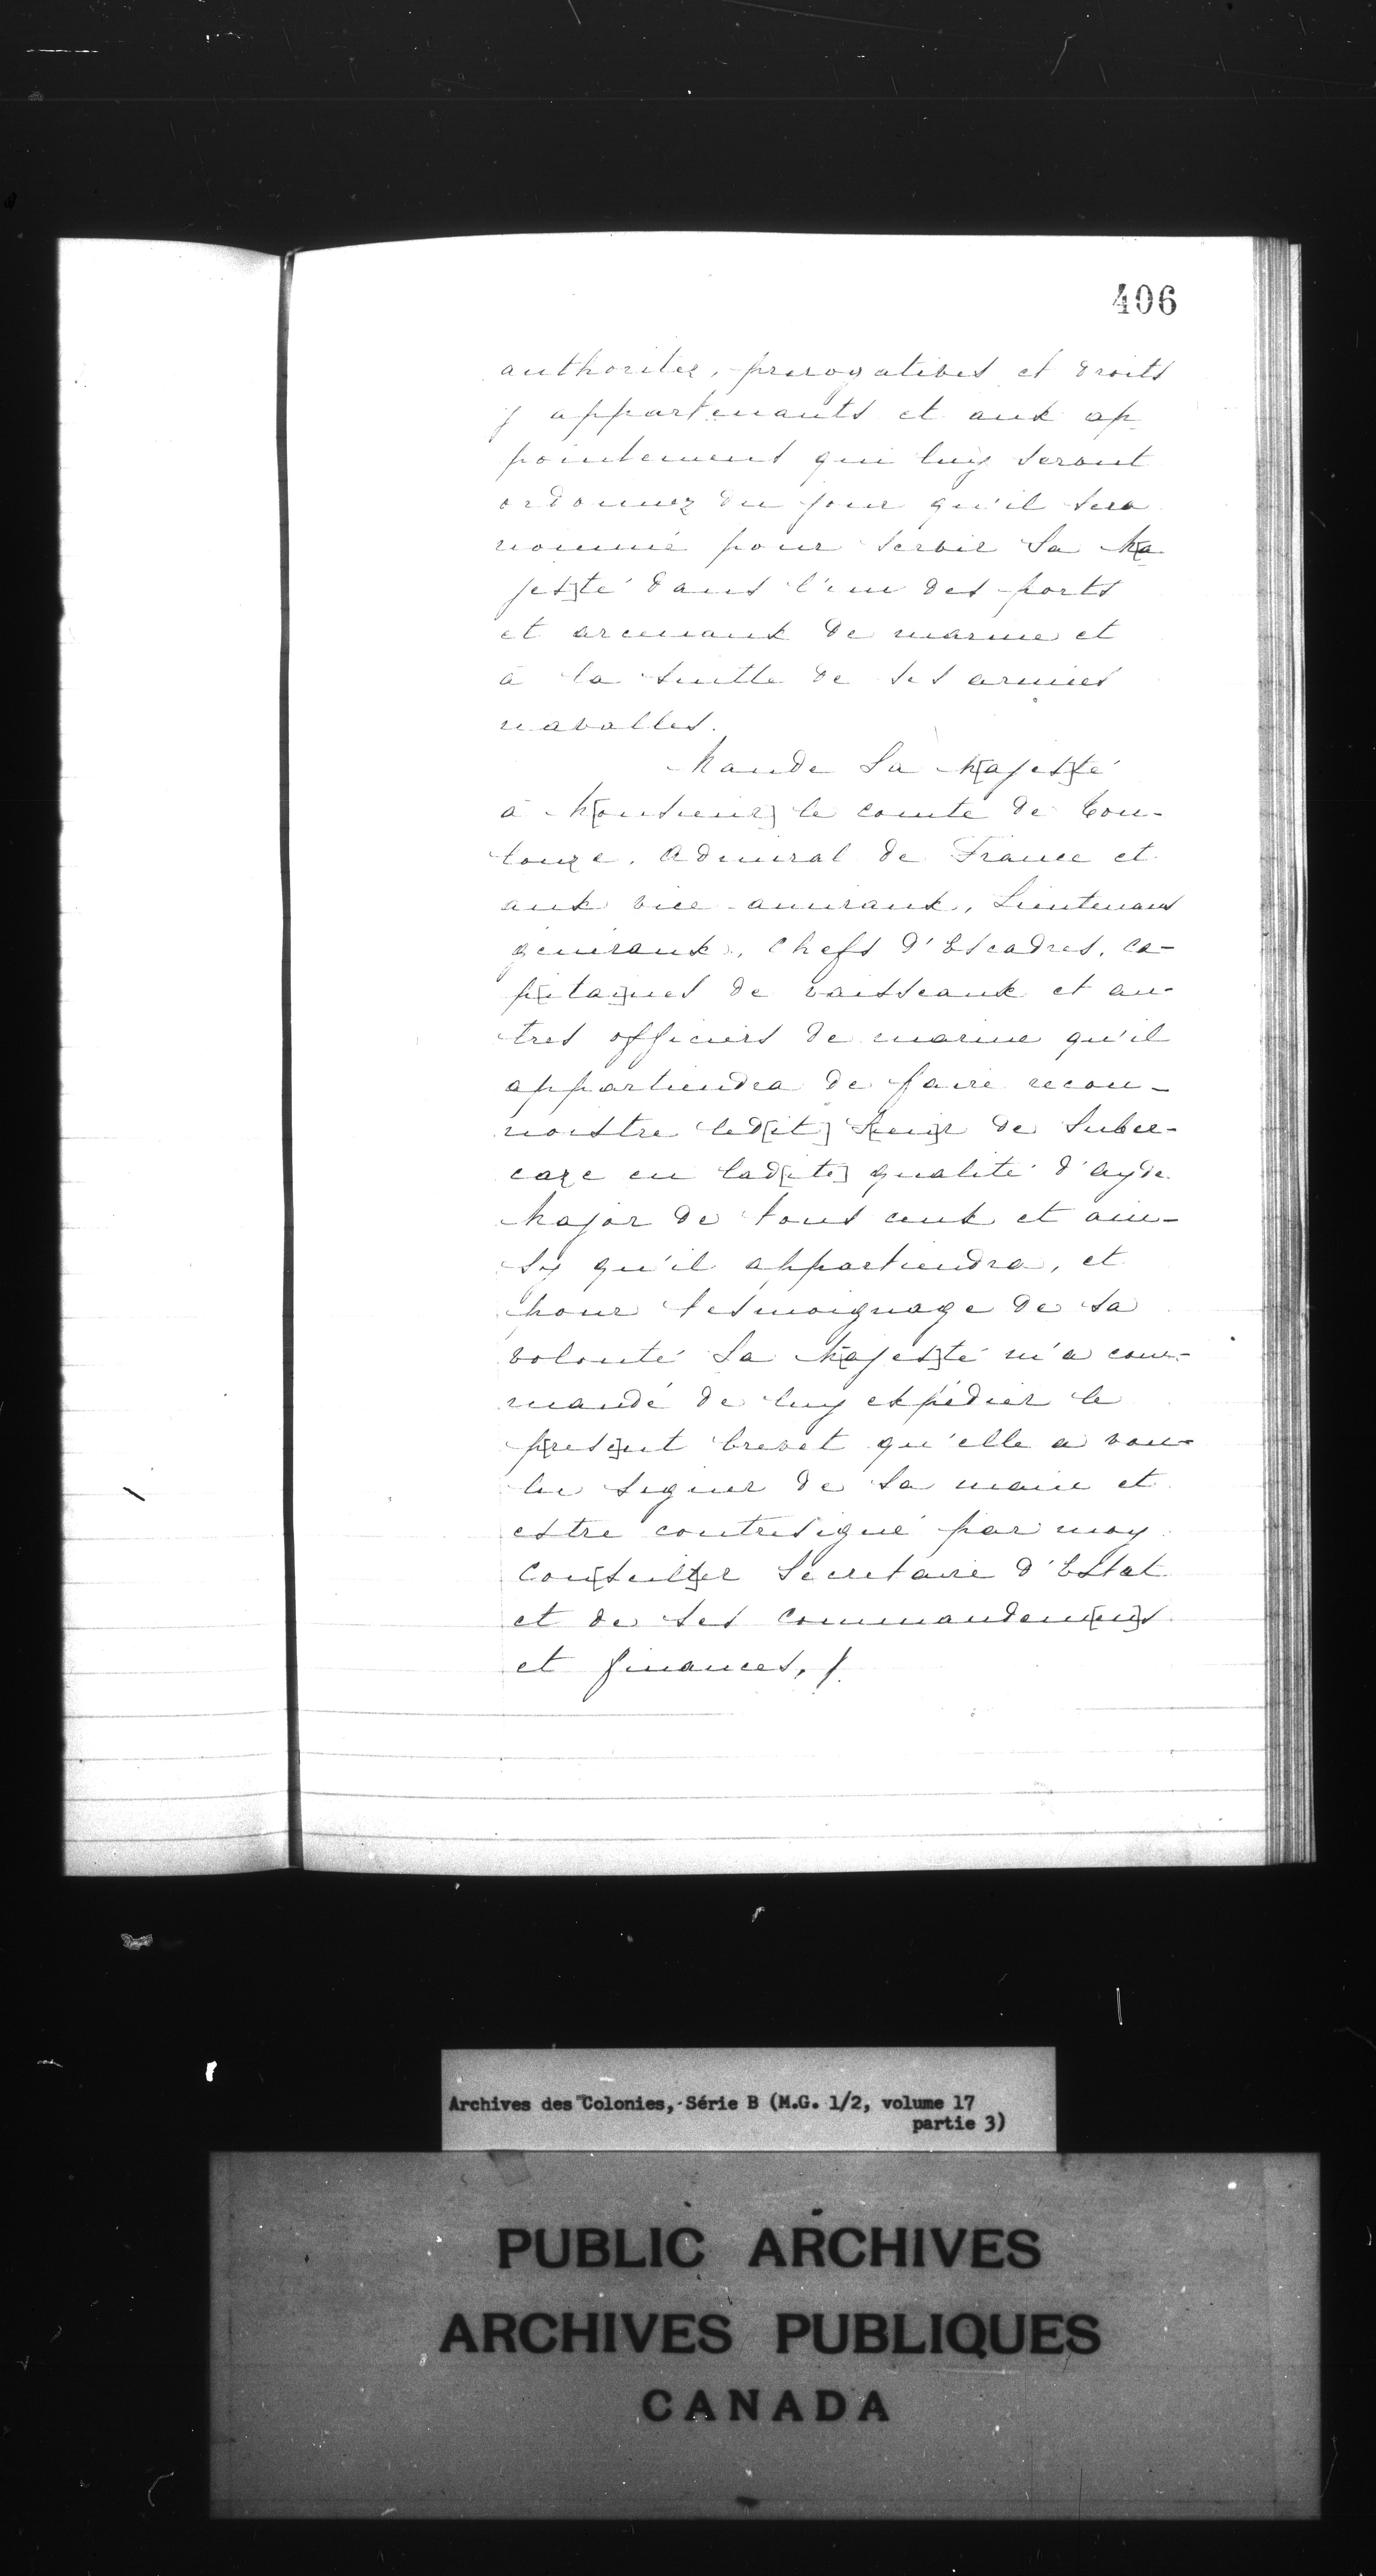 406
authoritez, prerogatives et droits
y appartenants et aux ap
pointement qui luy seront
ordonnez du jour qu'il sera
nommé pour servir Sa M[a
jes]té dans l'un des ports
et arcenaux de marine et
à la suitte de ses armées
navalles.
Mande Sa M[ajes]té
à M[onsieur] le comte de Tou-
louze, admiral de France et
aux vice amiraux, Lieutenans
generaux, Chefs d'Escadres, ca-
p[itai]nes de vaisseaux et au-
tres officiers de marine qu'il
appartiendra de faire recon-
noistre led[it] S[ieu]r de Suber-
caze en lad[ite] qualité d'ayde
Major de tous ceux et ain-
sy qu'il appartiendra, et
pour tesmoignage de sa
volonté Sa M[ajes]té m'a com-
mandé de luy expédier le
p[rese]nt brevet qu'elle a vou-
lu signer de Sa main et
estre contresigné par moy
Con[seill]er Secretaire d'Estat
et de ses Commandem[en]s
et finances, /.
Archives des Colonies, Série B (M.G. 1/2, volume 17
partie 3)
PUBLIC ARCHIVES
ARCHIVES PUBLIQUES
CANADA